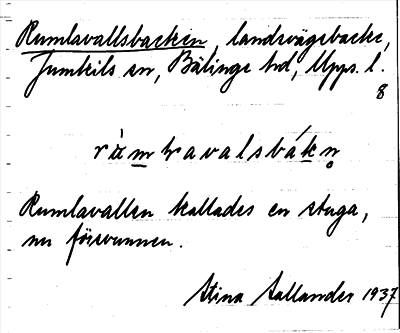 Rumlavallsbacken, landsvägsbacke,
Jumkils sn, Bälinge hd, Upps. l.
8
rùmlravalsbákn̥
Rumlavallen kallades en stuga,
nu försvunnen.
Stina Sallander 1937